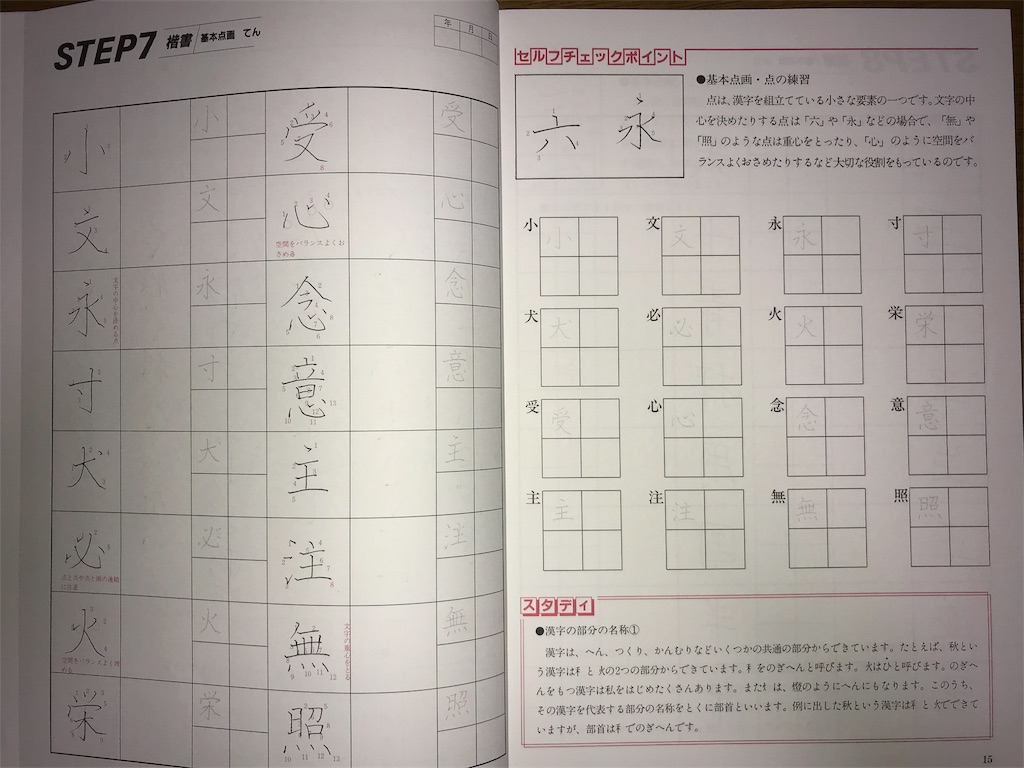 STEP7 楷書 基本点画 てん
年 月 日
小 小
文 文
永 永
文字の中心を決める点
寸 寸
犬 犬
必 必
火 火
栄 栄
受 受
心 心
空間をバランスよくお
さめる
念 念
意 意
主 主
注 注
無 無
文字の重心をとる
照 照
セルフチェックポイント
六 永
●基本点画・点の練習
点は、漢字を組立てている小さな要素の一つです。文字の中
心を決めたりする点は「六」や「永」などの場合で、「無」や
「照」のような点は重心をとったり、「心」のように空間をバ
ランスよくおさめたりするなど大切な役割をもっているのです。
小 小 文 文 永 永 寸 寸
犬 犬 必 必 火 火 栄 栄
受 受 心 心 念 念 意 意
主 主 注 注 無 無 照 照
スタディ
●漢字の部分の名称①
漢字は、へん、つくり、かんむりなどいくつかの共通の部分からできています。たとえば、秋とい
う漢字は禾と火の2つの部分からできています。禾をのぎへんと呼びます。火はひと呼びます。のぎへ
んをもつ漢字は私をはじめたくさんあります。また火は、燈のようにへんにもなります。このうち、
その漢字を代表する部分の名称をとくに部首といいます。例に出した秋という漢字は禾と火でできて
いますが、部首は禾でのぎへんです。
15